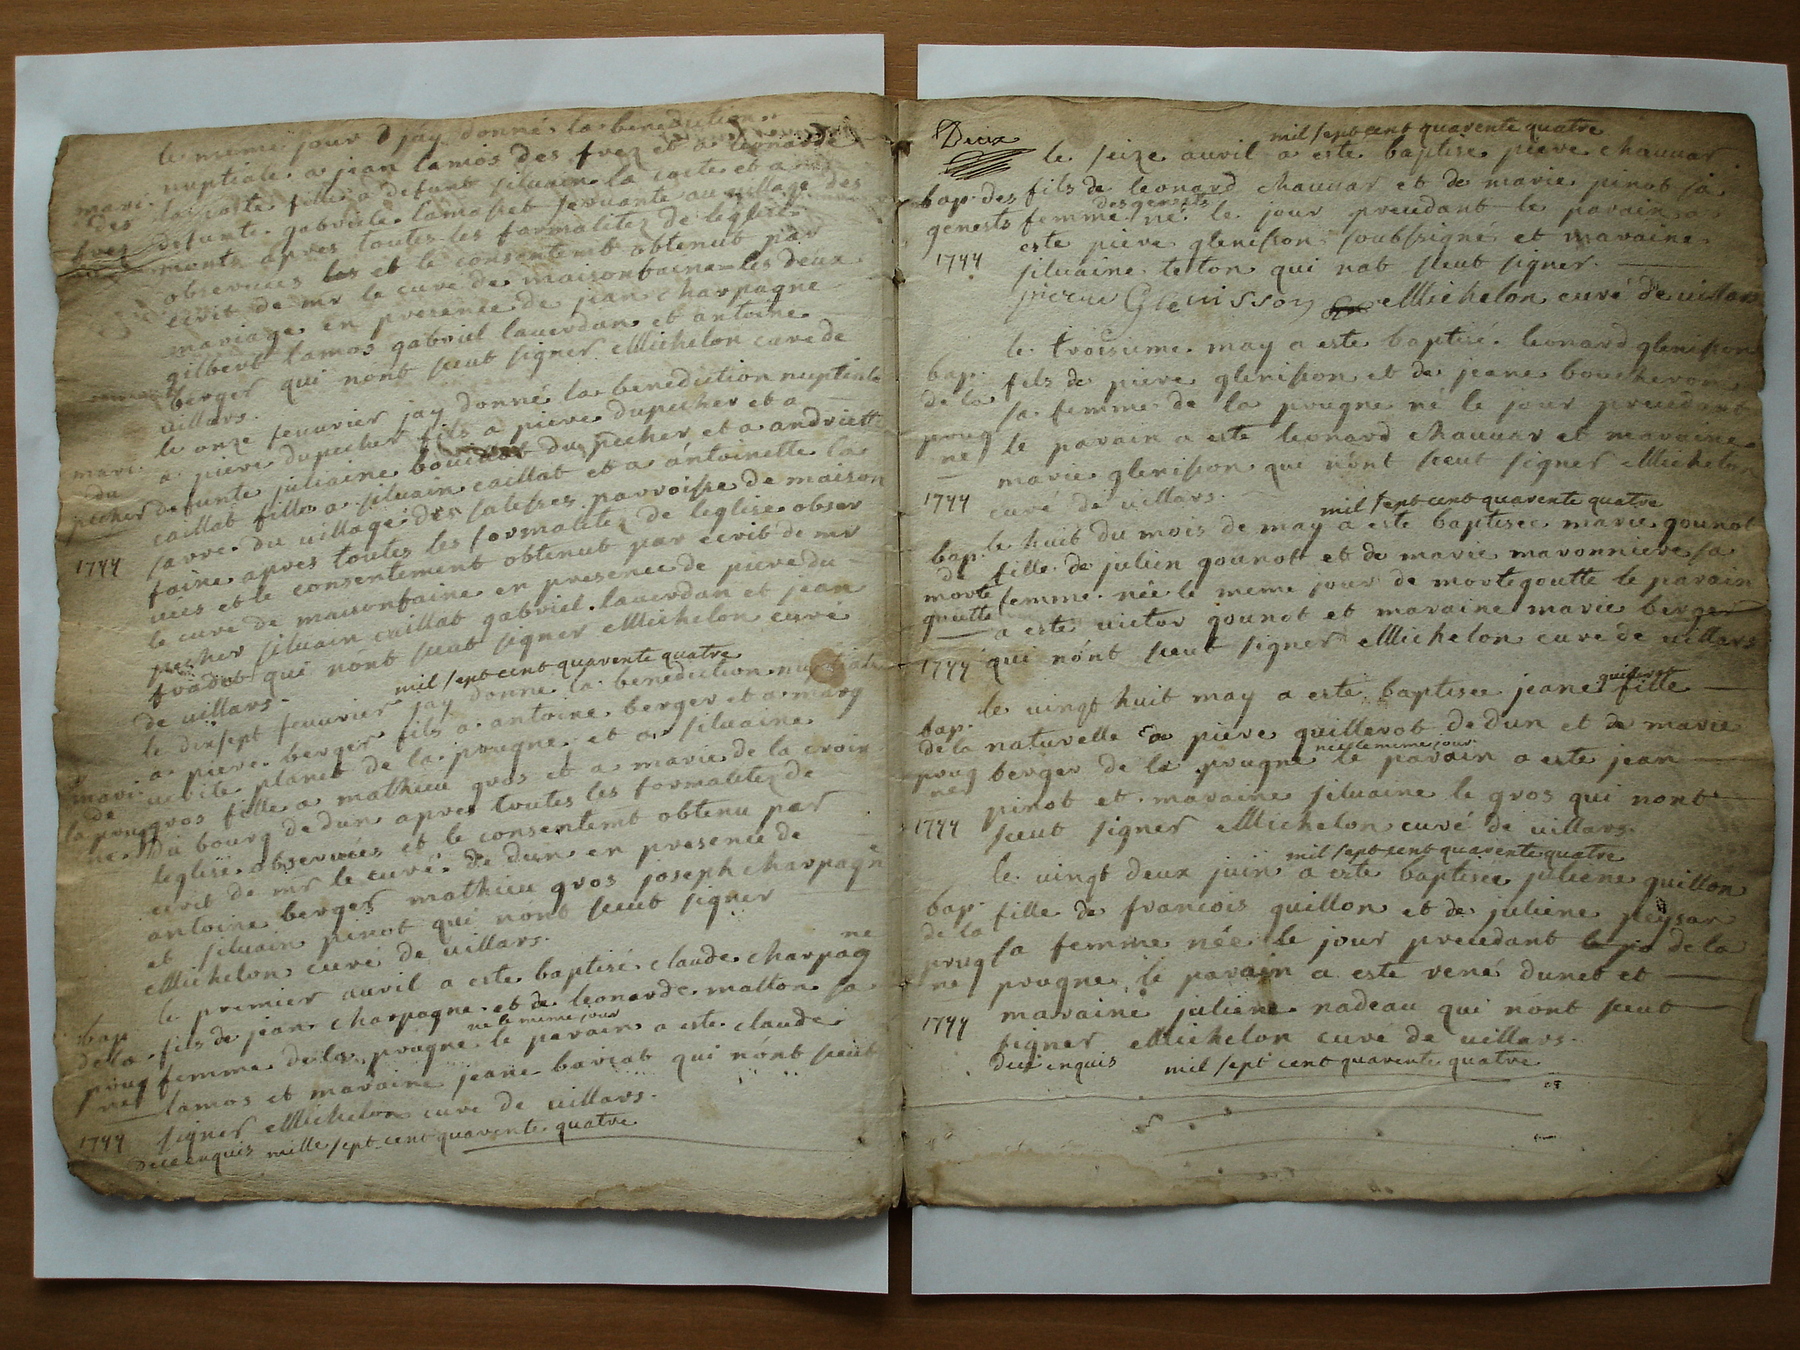 le meme jour jay donné la benediction
nuptiale a jean lamos des frez et a leonarde
mari. la coste fille a defunt siluain la coste et a
des defunte gabriele lamos et seruante au uillage des
frez
monts apres toutes les formalitez de leglise
obseruees et le consentemt obtenut par
ecrit de mr le curé de maisonfaine les deux
mariage en presence de jean charpagne
gilbert lamos gabriel lauerdan et antoine
berger qui nont sceut signer Michelon curé de
uillars.
le onze feuurier jay donné la benediction nuptiale
mari. a piere dupecher fils a piere dupecher et a
du defunte juliaine du pecher et a andriette
pecher caillat fille a siluain caillat et a antoinette la
sarre du uillage des parroisse de maison
1744 faine apres toutes les formalitez de leglise obser
uees et le consentement obtenut par ecrit de mr
le curé de maisonfaine en presence de piere du
pecher siluain caillat gabriel lauerdan et jean
fradet qui nont sceut signer Michelon curé
de uillars.
mil sept cent quarente quatre
le dixsept feuurier jay donné la benediction nuptiale
a piere berger fils a antoine berger et a marg
mari. uerite planet de la pougne et a siluaine
de gros fille a mathieu gros et a marie de la croix
la poug
ne du bourg de dun apres toutes les formalitez de
leglise obseruées et le consentemt obtenu par
ecrit de mr le curé de dun en presence de
antoine berger mathieu gros joseph charpagne
et siluain pinot qui nont sceut signer
Michelon curé de uillars.
ne
le premier auril a este baptisé claude charpag
bap
de la fils de jean charpagne et de leonarde malton sa
né le meme jour
poug femme de la pougne le parain a este claude
ne lamos et maraine jeane barcat qui nont sceut
signer Michelon curé de uillars.
1744
mille sept cent quarente quatre
Deux
mil sept cent quarente quatre
le seize auril a este baptisé piere chauuar
bap. des fils de leonard chauuar et de marie pinot sa
des genests
genests femme né le jour precedant le parain a
este piere glenisson soubsigné et maraine
1744 siluaine teton qui nat sceut signer.
pierre Glenisson Michelon curé de uillars
le troisieme may a este baptisé leonard glenisson
bap. fils de piere glenisson et de jeane boucheron
de la sa femme de la pougne né le jour precedant
poug le parain a este leonard chauuar et maraine
ne marie glenisson qui nont sceut signer Michelon
1744 curé de uillars.
mil sept cent quarente quatre
le huit du mois de may a este baptisee marie gounot
bap. fille de julien gounot et de marie maronniere sa
de
morte femme née le meme jour de mortegoutte le parain
goutte a este uictor gounot et maraine marie berger
1744 qui nont sceut signer Michelon curé de uillars
le uingt huit may a este baptisee jeane fille
bap.
de la naturelle a piere guillerot de dun et de marie
née le meme jour
poug berger de la pougne le parain a este jean
ne pinot et maraine siluaine le gros qui nont
1744 sceut signer Michelon curé de uillars.
mil sept cent quarente quatre
le uingt deux juin a este baptisée juliene guillon
bap. fille de francois guillon et de juliene peysar
de la sa femme née le jour precedant de la
poug
ne pougne le parain a este rené dunet et
maraine juliene nadeau qui nont sceut
1744 signer Michelon curé de uillars.
mil sept cent quarente quatre